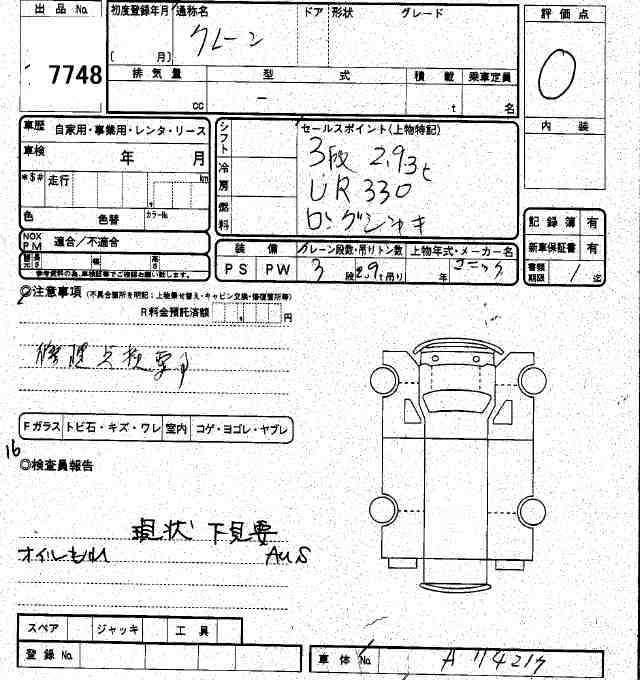 出品 No.
7748
初度登録年月
[ 月]
通称名
クレーン
ドア 形状 グレード
排気量 型式 積載 乗車定員
cc － t 名
評価点
0
内装
車歴 自家用・事業用・レンタ・リース
車検 年 月
*$# 走行 km
色 色替 カラーNo.
NOX PM 適合／不適合
長さ 幅 高さ
参考資料の為、車検証等でご確認お願い致します。
シフト
冷房
燃料
セールスポイント（上物特記）
3段 2.93t
UR330
ロングジャッキ
装備 クレーン段数・吊りトン数 上物年式・メーカー名
PS PW 3 段 2.9 t吊り 年 ユニック
記録簿 有
新車保証書 有
書類期限 / 迄
◎注意事項（不具合箇所を明記：上物乗せ替え・キャビン交換・修復箇所等）
R料金預託済額 円
修理点検要す
Fガラス トビ石・キズ・ワレ 室内 コゲ・ヨゴレ・ヤブレ
16
◎検査員報告
現状 下見要
オイルもれ AuS
スペア ジャッキ 工具
登録 No.
車体 No. A